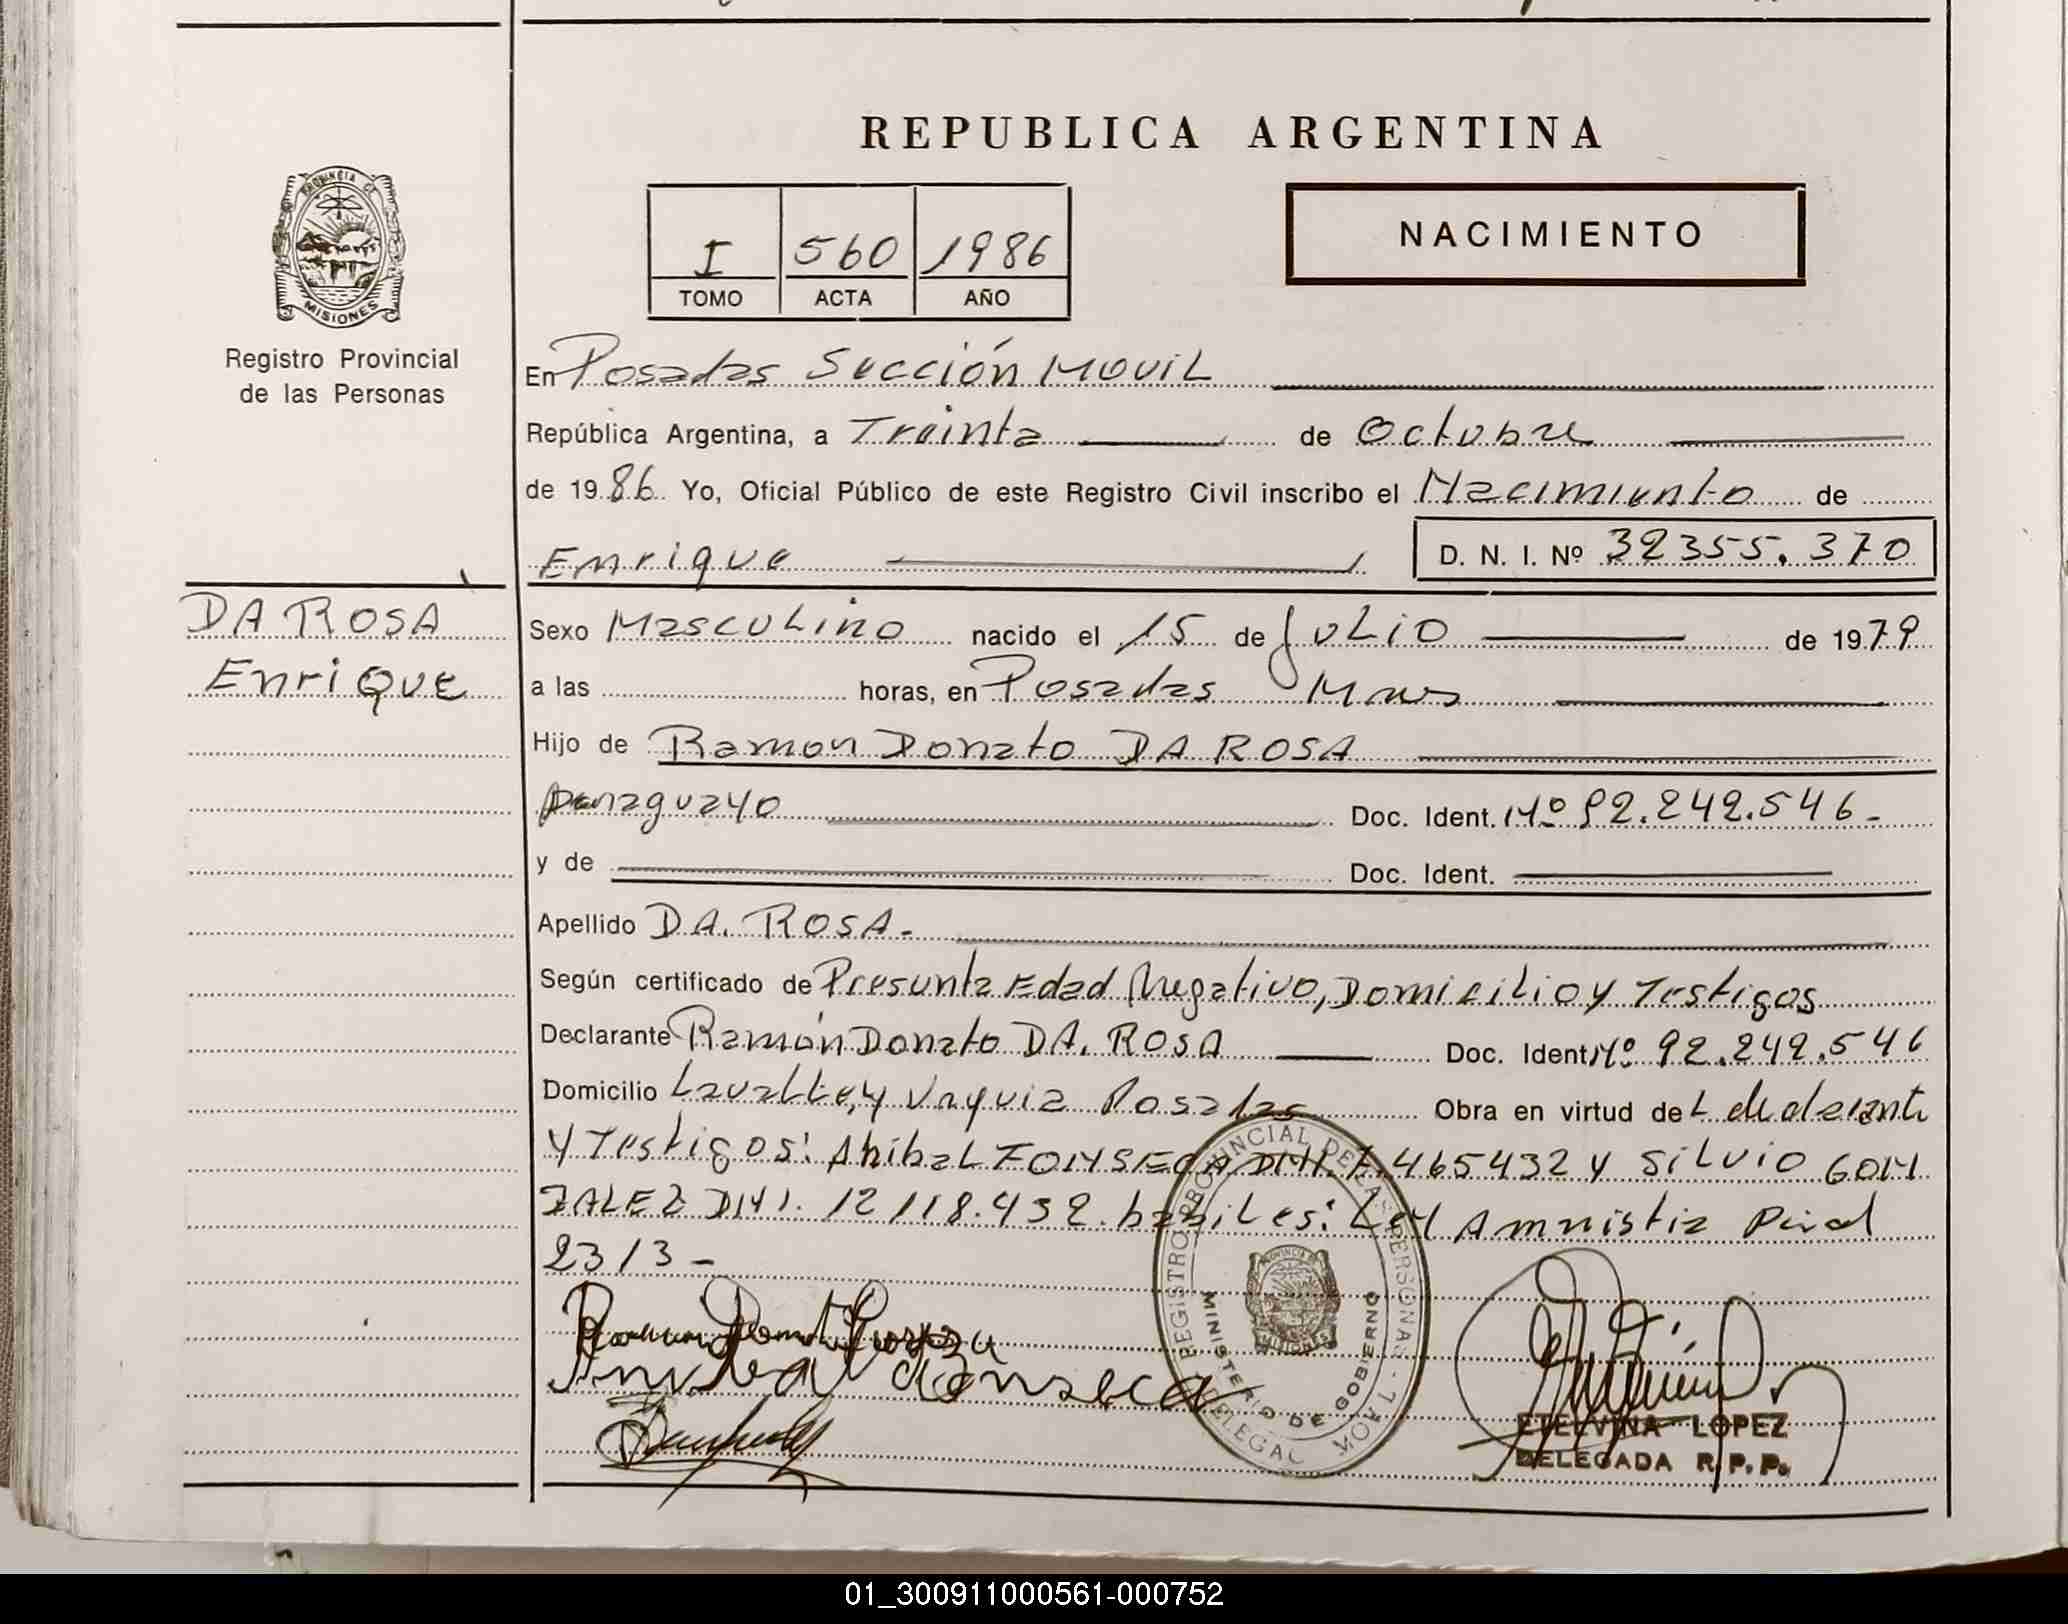 REPUBLICA ARGENTINA
PROVINCIA DE
MISIONES
Registro Provincial
de las Personas
I 560 1986
TOMO ACTA AÑO
NACIMIENTO
En Posadas Sección Movil
República Argentina, a Treinta de Octubre
de 1986 Yo, Oficial Público de este Registro Civil inscribo el Nacimiento de
Enrique D. N. I. Nº 32355.370
DA ROSA
Enrique
Sexo Masculino nacido el 15 de Julio de 1979
a las horas, en Posadas Mnes
Hijo de Ramon Donato DA ROSA
Paraguayo Doc. Ident. Nº 92.242.546-
y de Doc. Ident.
Apellido DA. ROSA.-
Según certificado de Presunta Edad Negativo, Domicilio y Testigos
Declarante Ramón Donato DA. ROSA Doc. Ident. Nº 92.242.546
Domicilio Lavalle, y Posadas Obra en virtud de L
y Testigos: Anibal FONSECA DNI. 7.465432 y Silvio GON
ZALEZ DNI. 12118.432. habiles: Ley Amnistia
2313-
Anibal Fonseca
REGISTRO PROVINCIAL DE LAS PERSONAS -
MINISTERIO DE GOBIERNO
PROVINCIA DE
MISIONES
DELEGAC MOVIL
ETELVINA LOPEZ
DELEGADA R.P.P.
01_300911000561-000752